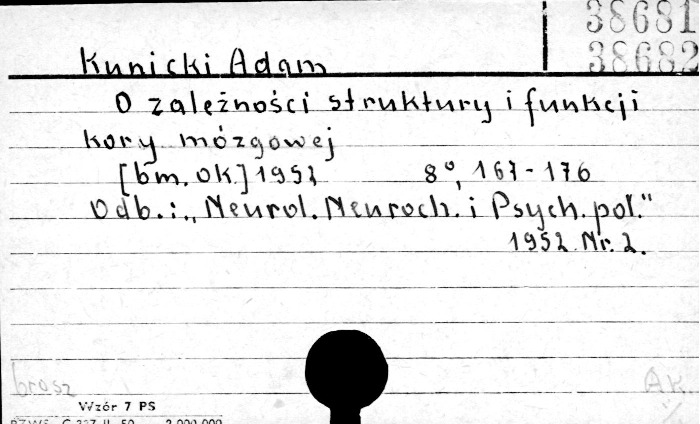 38681
38682
Kunicki Adam
O zależności struktury i funkcji
kory mózgowej
[bm. ok.] 1952 8°, 167-176
Odb. i: „Neurol. Neuroch. i Psych. pol."
1952 Nr. 2.
brosz Ak.
Wzór 7 PS